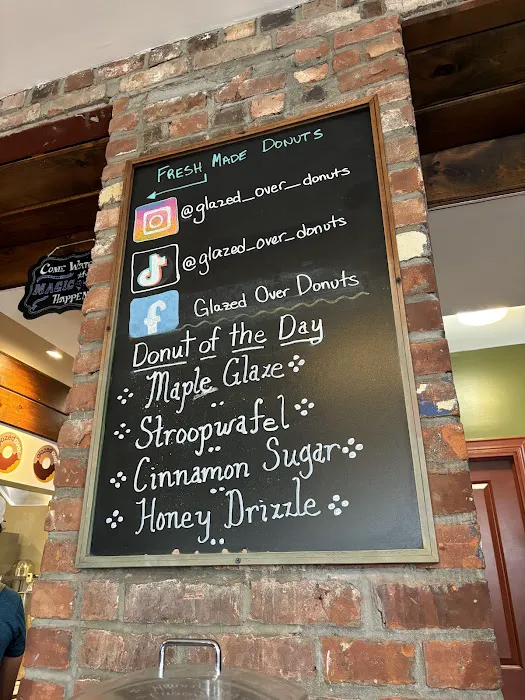 FRESH MADE DONUTS
@glazed_over_donuts
@glazed_over_donuts
Glazed Over Donuts
Donut of the Day
Maple Glaze
Stroopwafel
Cinnamon Sugar
Honey Drizzle
COME WATCH
MAGIC
HAPPEN